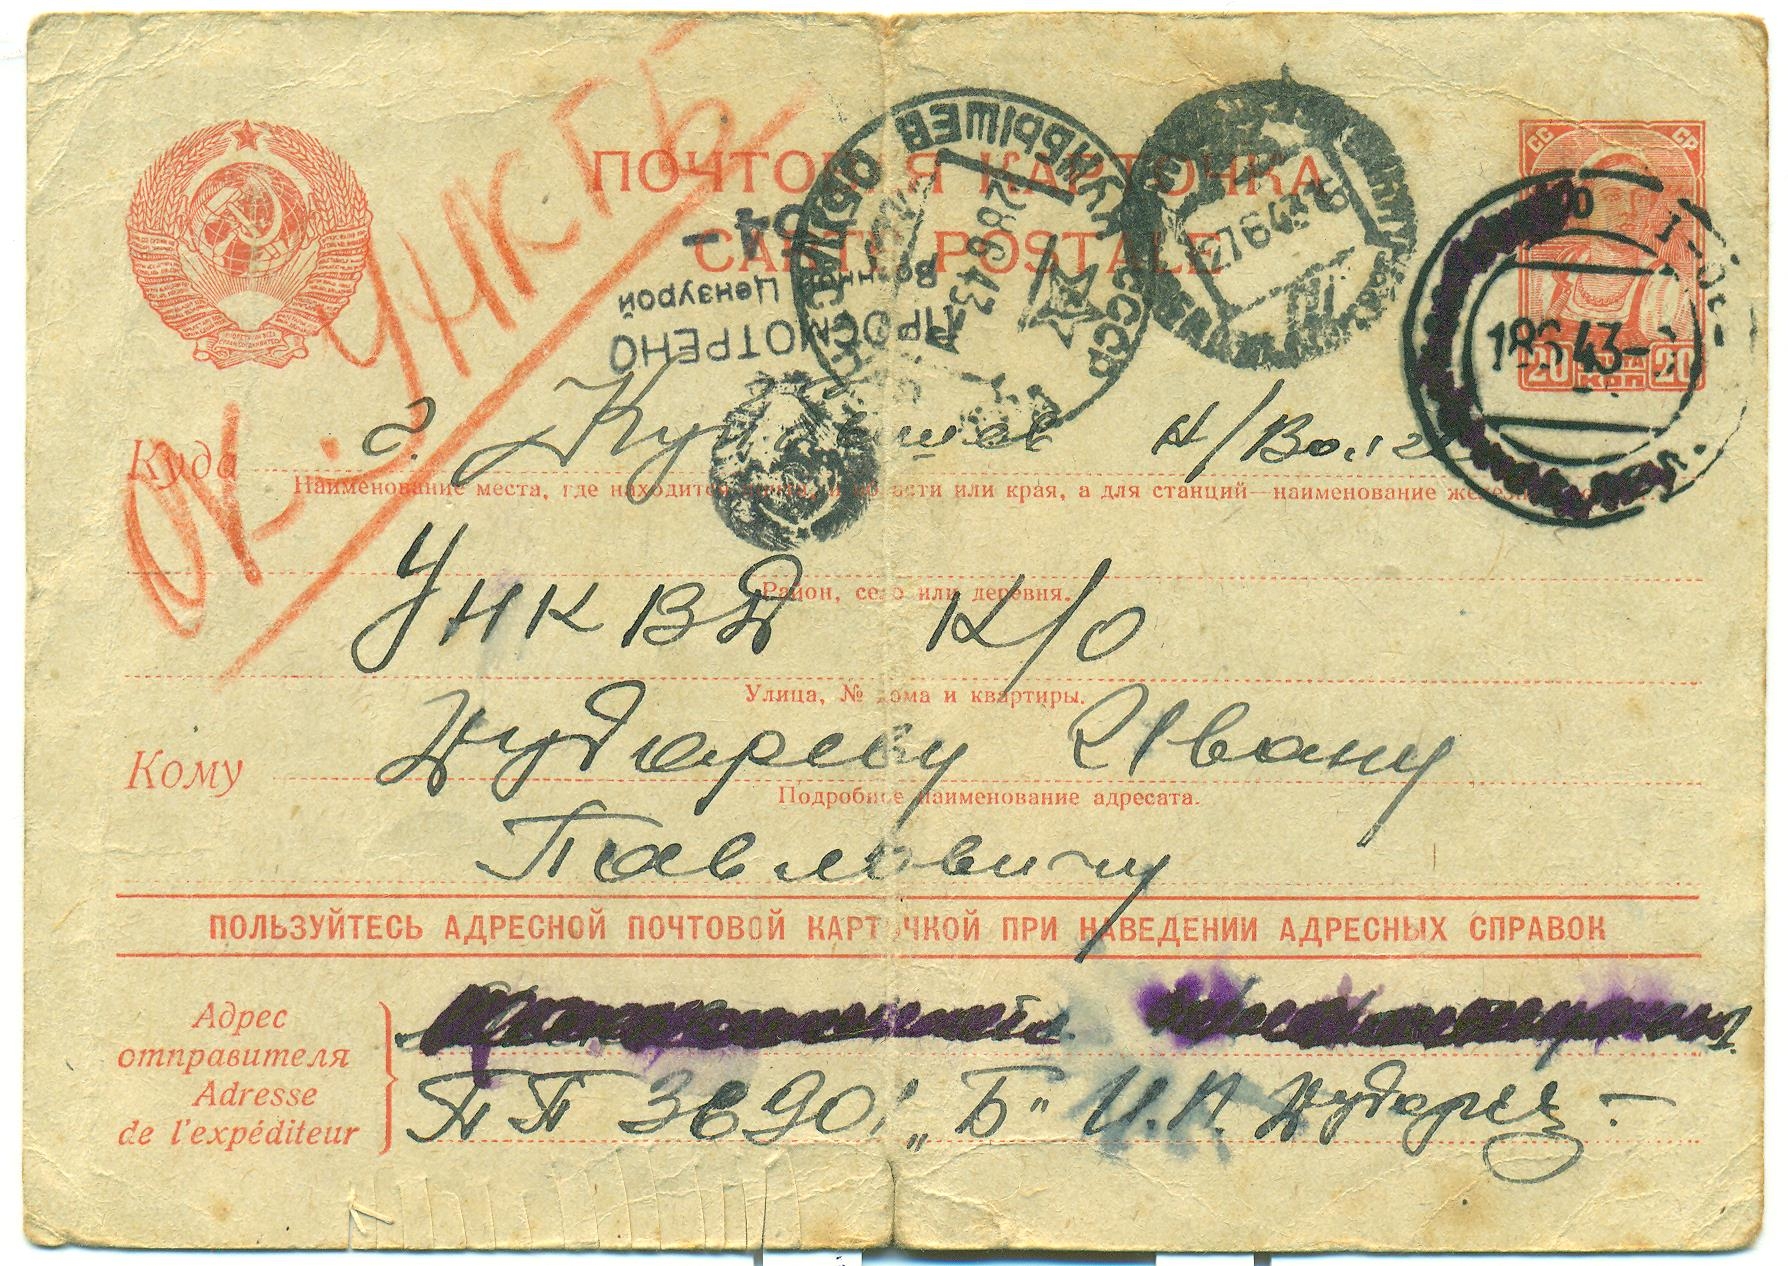 ОК. УНКГБ
ПОЧТОВАЯ КАРТОЧКА
CARTE POSTALE
СС СР
20 ПОЧТА 20
КОП
84
ПРОСМОТРЕНО
Военной Цензурой
КУЙБЫШЕВ ОБЛАСТ. СССР
28 6 43
27 6 43 19
18 6 43
Куда г. Куйбышев н/Волге
Наименование места, где находится почта, и области или края, а для станций—наименование железной
УНКВД К/О
Район, село или деревня.
Улица, № дома и квартиры.
Кому Ивану
Подробное наименование адресата.
Павловичу
ПОЛЬЗУЙТЕСЬ АДРЕСНОЙ ПОЧТОВОЙ КАРТОЧКОЙ ПРИ НАВЕДЕНИИ АДРЕСНЫХ СПРАВОК
Адрес
отправителя
Adresse
de l'expéditeur
ПП 36901 „Б" И. П.